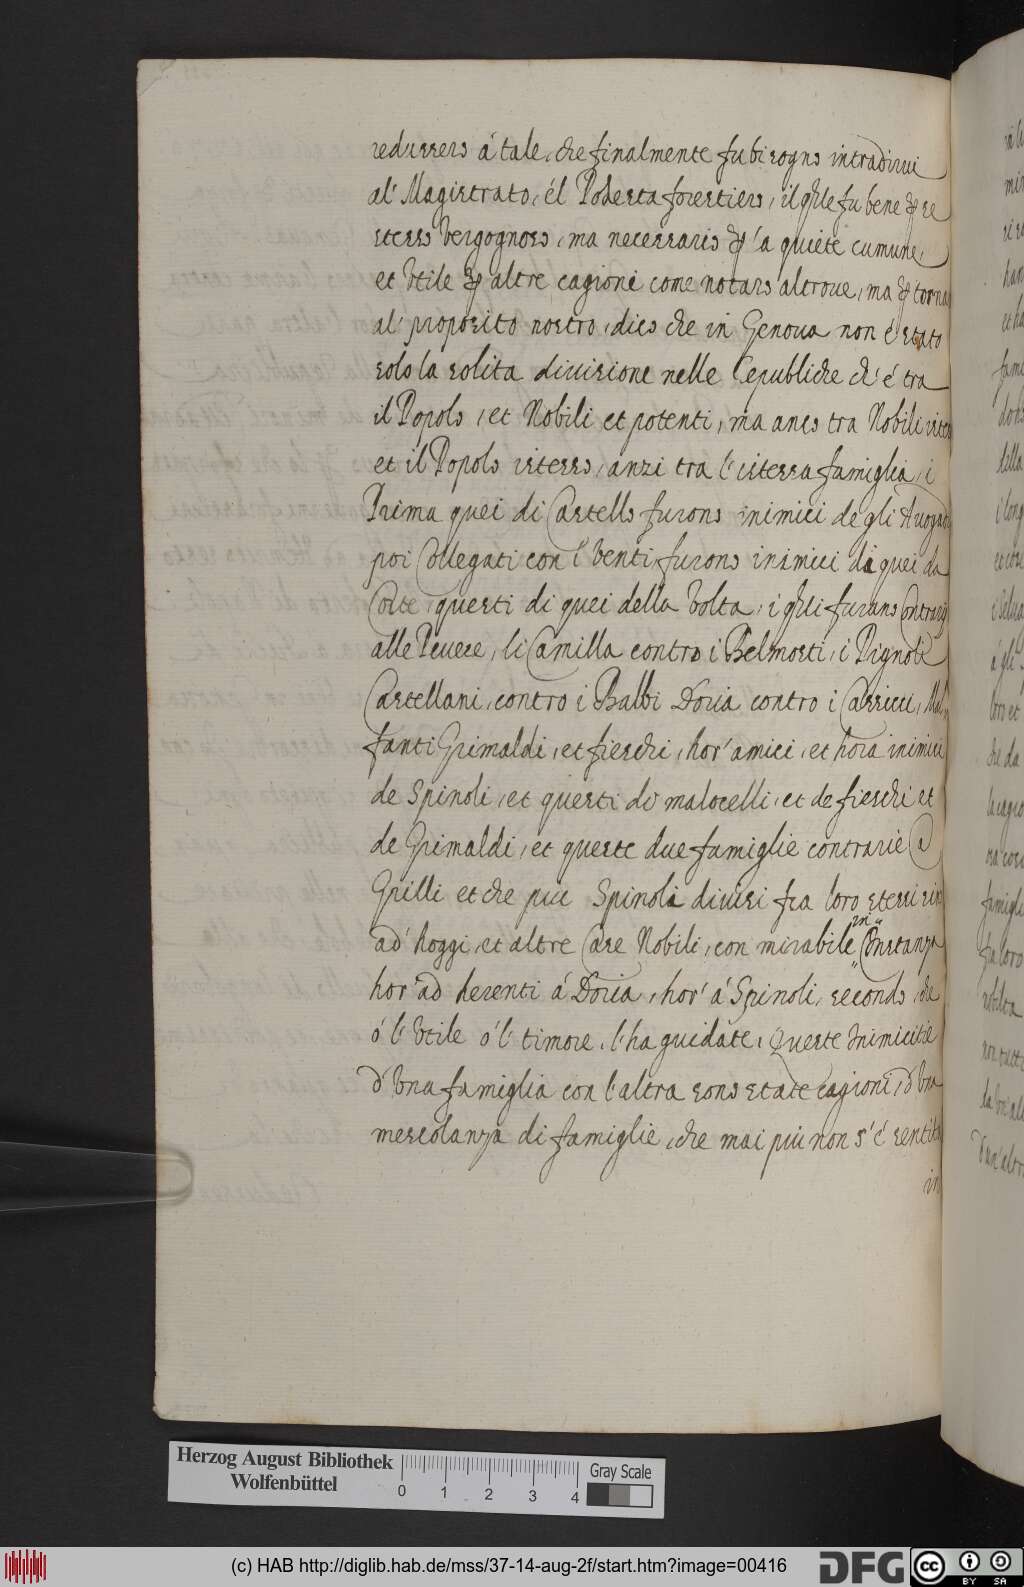 redussero à tale, che finalmente fu bisogno intradurui
al' Magistrato, él Podesta forestiero, il q̃le fu bene ꝑ se
stesso vergognoso, ma necessario ꝑ la quiete cumune,
et vtile ꝑ altre cagioni come notaro altroue, ma ꝑ torna
al' proposito nostro, dico che in Genoua non é stato
solo la solita diuisione nelle Republiche ch' é tra
il Popolo, et Nobili et potenti, ma anco tra Nobili istes
et il Popolo istesso, anzi tra l'istessa famiglia, i
Prima quei di Castello furono inimici degli Auogad
poi Collegati con i Venti furono inimici di quei da
Corte, questi di quei della Volta, i q̃li furano Contrarij
alle Peuere, li Camilla contro i Belmosti, i Pignoli
Castellani, contro i Balbi Doria contro i Carricci, Mal
fanti Grimaldi, et fieschi, hor' amici, et hora inimici
de Spinoli, et questi di malocelli, et de fieschi et
de Grimaldi, et queste due famiglie contrarie a
Grilli et che piu Spinoli diuisi fra loro stessi sin
ad' hoggi, et altre Case Nobili, con mirabile in Constanza
hor' ad herenti á Doria, hor' á Spinoli, secondo, che
ó l' vtile ó l' timore, l'ha guidate, Queste Inimicitie
d' vna famiglia con l'altra sono state cagioni, d' vna
mescolanza di famiglie, che mai piu non s' é sentita
in
Herzog August Bibliothek
Wolfenbüttel
0 1 2 3 4
Gray Scale
(c) HAB http://diglib.hab.de/mss/37-14-aug-2f/start.htm?image=00416
DFG
cc BY SA